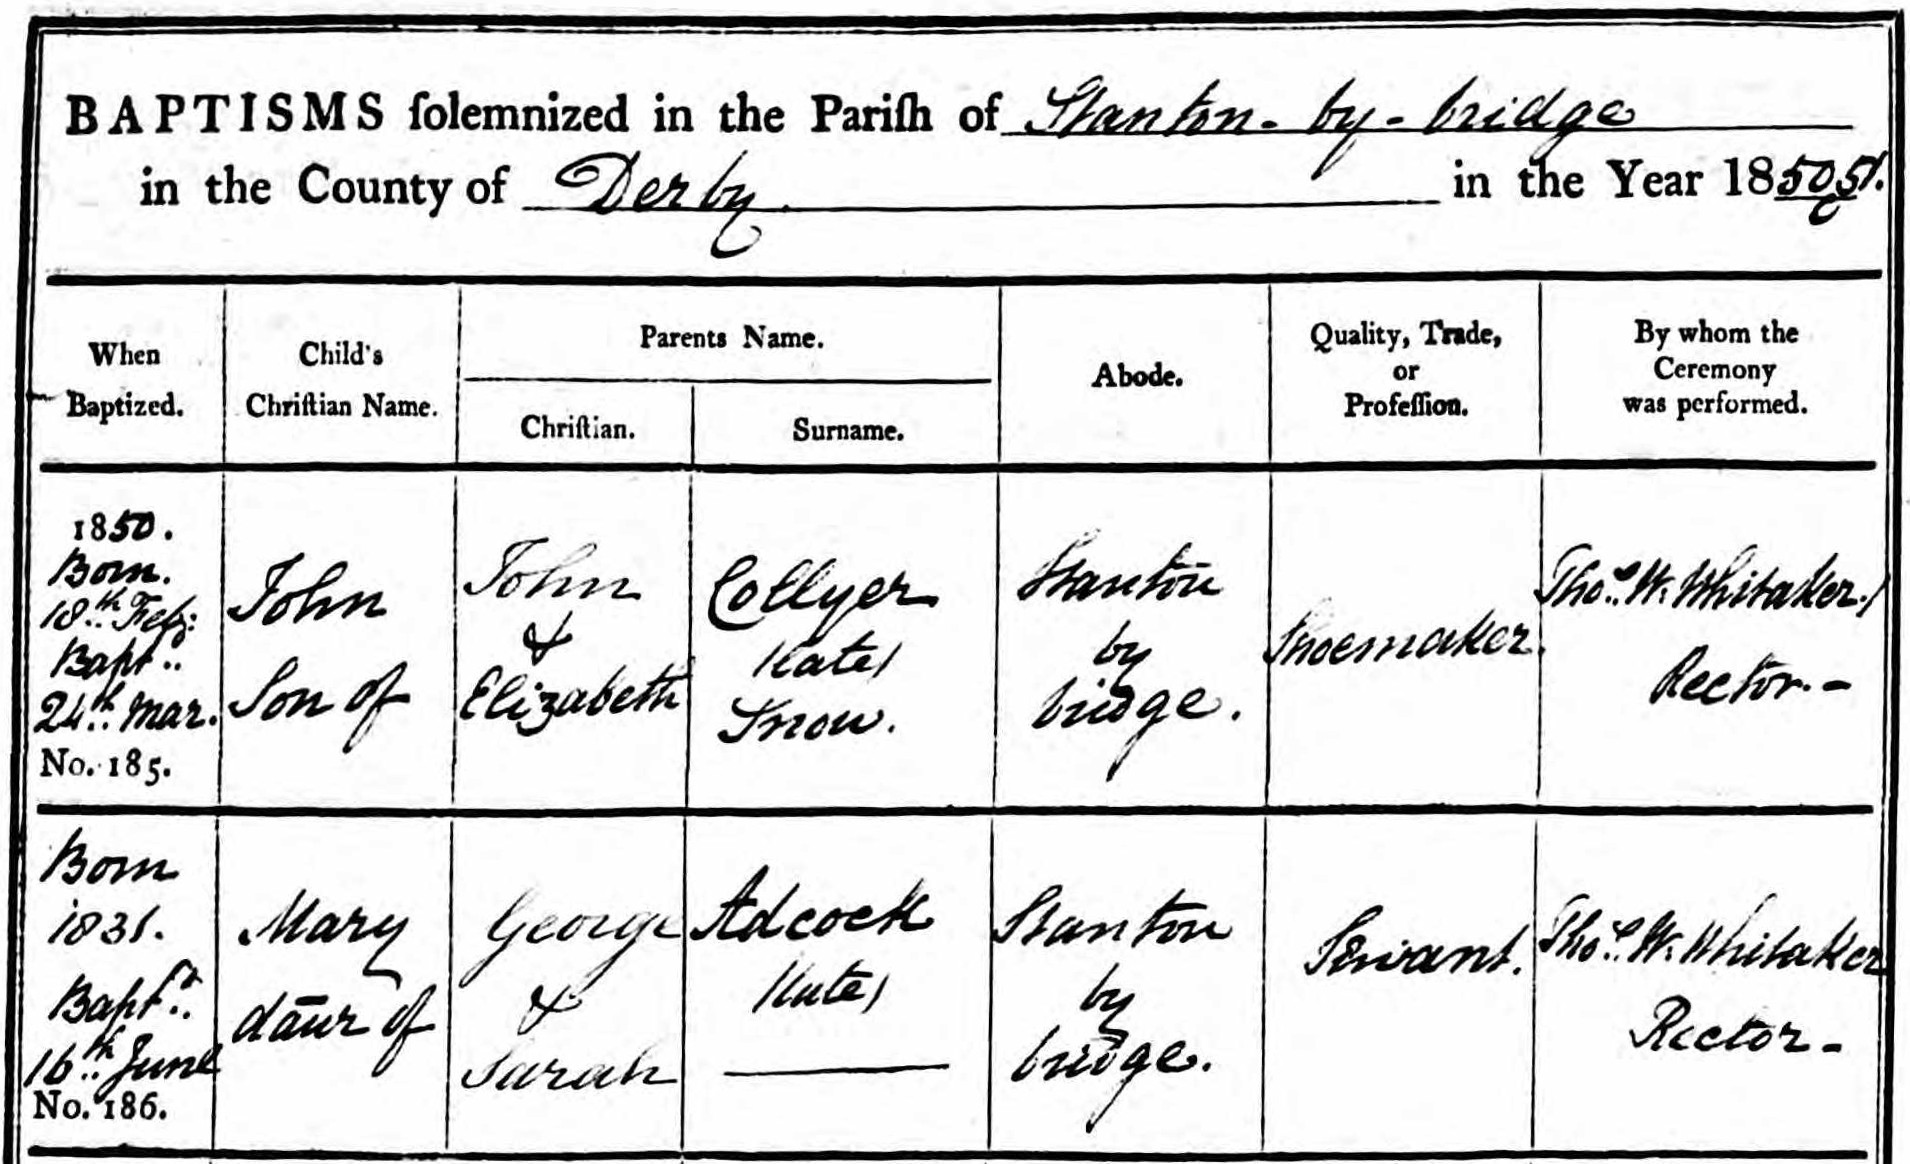 BAPTISMS ſolemnized in the Pariſh of Stanton-by-bridge
in the County of Derby. in the Year 1850&51.
When
Baptized.
Child's
Chriſtian Name.
Parents Name.
Chriſtian.
Surname.
Abode.
Quality, Trade,
or
Profeſſion.
By whom the
Ceremony
was performed.
1850.
Born.
18.th Feb:
Bapt..
24.th Mar.
No. 185.
John
Son of
John
&
Elizabeth
Collyer
(late)
Snow.
Stanton
by
bridge.
Shoemaker.
Tho.s W. Whitaker./
Rector.-
Born
1831.
Bapt.d
16.th June
No. 186.
Mary
daūr of
George
&
Sarah
Adcock
(late)
Stanton
by
bridge.
Servant.
Tho.s W. Whitaker
Rector-